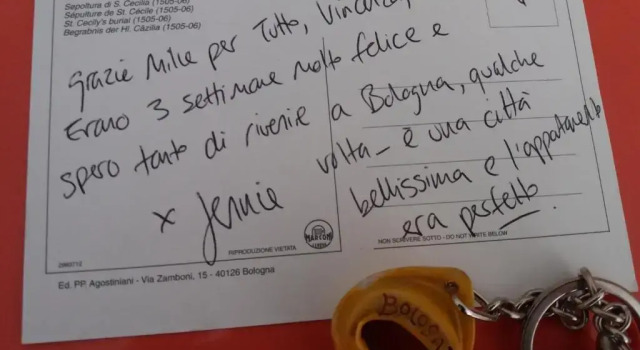 Sepoltura di S. Cecilia (1505-06)
Sépulture de St. Cécile (1505-06)
St. Cecily's burial (1505-06)
Begrabnis der Hl. Cäzilia (1505-06)
Grazie Mille per Tutto,
Erano 3 settimane molto felice e
spero tanto di rivenire a Bologna, qualche
volta - è una città
bellissima e l'appartamento
era perfetto.
x Jennie
MARCONI
RIPRODUZIONE VIETATA
NON SCRIVERE SOTTO - DO NOT WRITE BELOW
Ed. PP. Agostiniani - Via Zamboni, 15 - 40126 Bologna
BOLOGNA